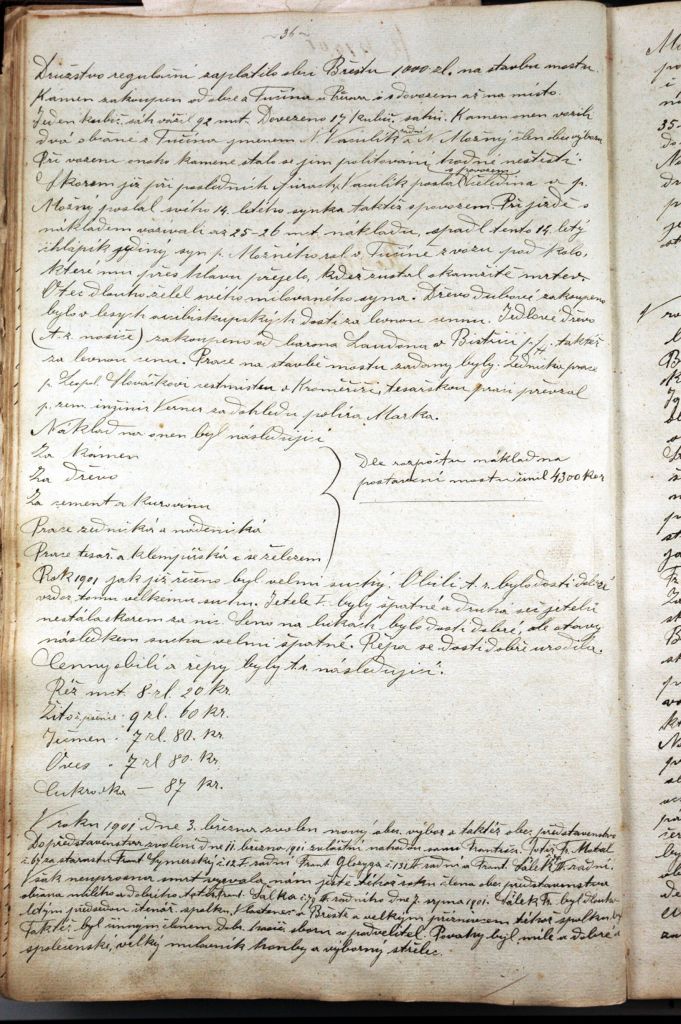 ~ 36 ~
Družstvo regulační zaplatilo obci Břestu 1000 zl. na stavbu mostu.
Kamen zakoupen od obce z Tučína u Přerova i s dovozem až na místo.
Jeden kubič. sáh vážil 92 mt. Dovezeno 17 kubič. sáhů. Kamen onen vozili
dva občané z Tučína jmenem N. Vaculík radní a N. Možný člen obec. výboru.
Při vožení onoho kamene stalo se jim politování hodné neštěstí.
Skorem již při posledních fůrach, Vaculík poslal s povozem čeledína a p.
Možný poslal svého 14 letého synka taktéž s povozem. Při jízdě s
nákladem vozívali až 25-26 mt. nakladu, spadl tento 14 letý
chlapík jediný syn p. Možného rol. v Tučíně z vozu pod kolo,
které mu přes hlavu přejelo, kdež zustal okamžitě mrtev.
Otec dlouho želel svého milovaného syna. Dřevo dubové zakoupeno
bylo v lesych arcibiskupských dosti za levnou cenu. Jedlové dřevo
(t. z. nosiče) zakoupeno od barona Laudona v Bistřici p/H. taktéž
za levnou cenu. Prace na stavbě mostu zadany byly. Zednicka prace
p. Leopol. Slováčkovi cestmistru v Kroměříži, tesařskou praci převzal
p. zem. inžinir Verner za dohledu políra Marka.
Náklad na onen byl následující
Za kámen
Za dřevo
Za cement a kurovinu
Prace zednická a nádenická
Prace tesař. a klempířská i se železem
Dle rozpočtu náklad na
postavení mostu činil 4300 kor
Rok 1901 jak již řečeno byl velmi suchý. Obilí t. r. bylo dosti dobré
vzdor tomu velkému suchu. Jetele I. byly špatné a druhá seč jetelů
nestála skorem za nic. Seno na lukách bylo dosti dobré, ale otavy
následkem sucha velmi špatné. Řepa se dosti dobře urodila.
Cenny obilí a řepy byly t. r. následující:
Rěž mt. 8 zl. 20 kr.
Žito pšenice - 9 zl. 60 kr.
Ječmen - 7 zl. 80. kr.
Oves - 7 zl 80 kr.
Cukrovka — 87 kr.
V roku 1901. dne 3. března zvolen nový obec. výbor a taktéž obec. představenstvo
Do představenstva zvoleni dne 11. března 901 zvláštní nahodou sami František. Totiž Fr. Makal
č. 67 za starostu Frant Symerský č 12 I. radní Frant Glozyga č 131 II radní a Frant Sálek č 79 III radní.
Však neuprosna smrt vyrvala nám ještě téhož roku člena obec. představenstva
občana milého a dobrého Frant. Sálka č 79 III. radního dne 7. srpna 1901. Sálek Fr. byl dlouho-
letým předsedou čtenář. spolku, Vlastenec v Břestě a velkým příznivcem téhož spolku, byl
taktéž byl činným členem dob. hasič. sboru co podvelitel. Povahy byl milé a dobré a
společenské, velký milovník honby a výborný střelec.